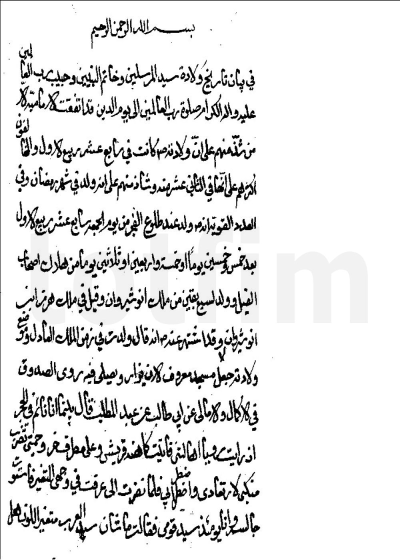 بسم الله الرحمن الرحيم
في بيان تاريخ ولادة سيد المرسلين وخاتم النبيين وحبيب رب العالمين
عليه واله الكرام صلوة رب العالمين الى يوم الدين قد اتفقت الامامية الا
من شذ منهم على انّ ولادته ص كانت في سابع عشر ربيع الاول والمخالفون
اكثرهم على انّها في الثاني عشر منه وشاذ منهم على انه ولد في شهر رمضان وفي
العدد القوية انه ص ولد عند طلوع الفجر من يوم الجمعة سابع عشر ربيع الاول
بعد خمس وخمسين يوماً او خمسة واربعين او ثلاثين يوماً من هلاك اصحاب
الفيل وولد لسبع بقين من ملك انوشيروان وقيل في ملك هرمز ابن
انوشيروان وقد اشتهر عنه ص انه قال ولدت في زمن الملك العادل وموضع
ولادته جعل مسجد معروف الان يزار ويصلى فيه روى الصدوق
في الاكمال والامالي عن ابي طالب عن عبد المطلب قال بينما انا نائم في الحجر
اذ رايت رؤيا اهالتني فاتيت كاهنة قريش وعلي مطرف خز وجمتي تضرب
منكبي فلما نظرت الى عرفت في وجهي التغير فاستوت
جالسة وانا يومئذ سيد قومي فقالت ما شان سيد العرب متغير اللون هل